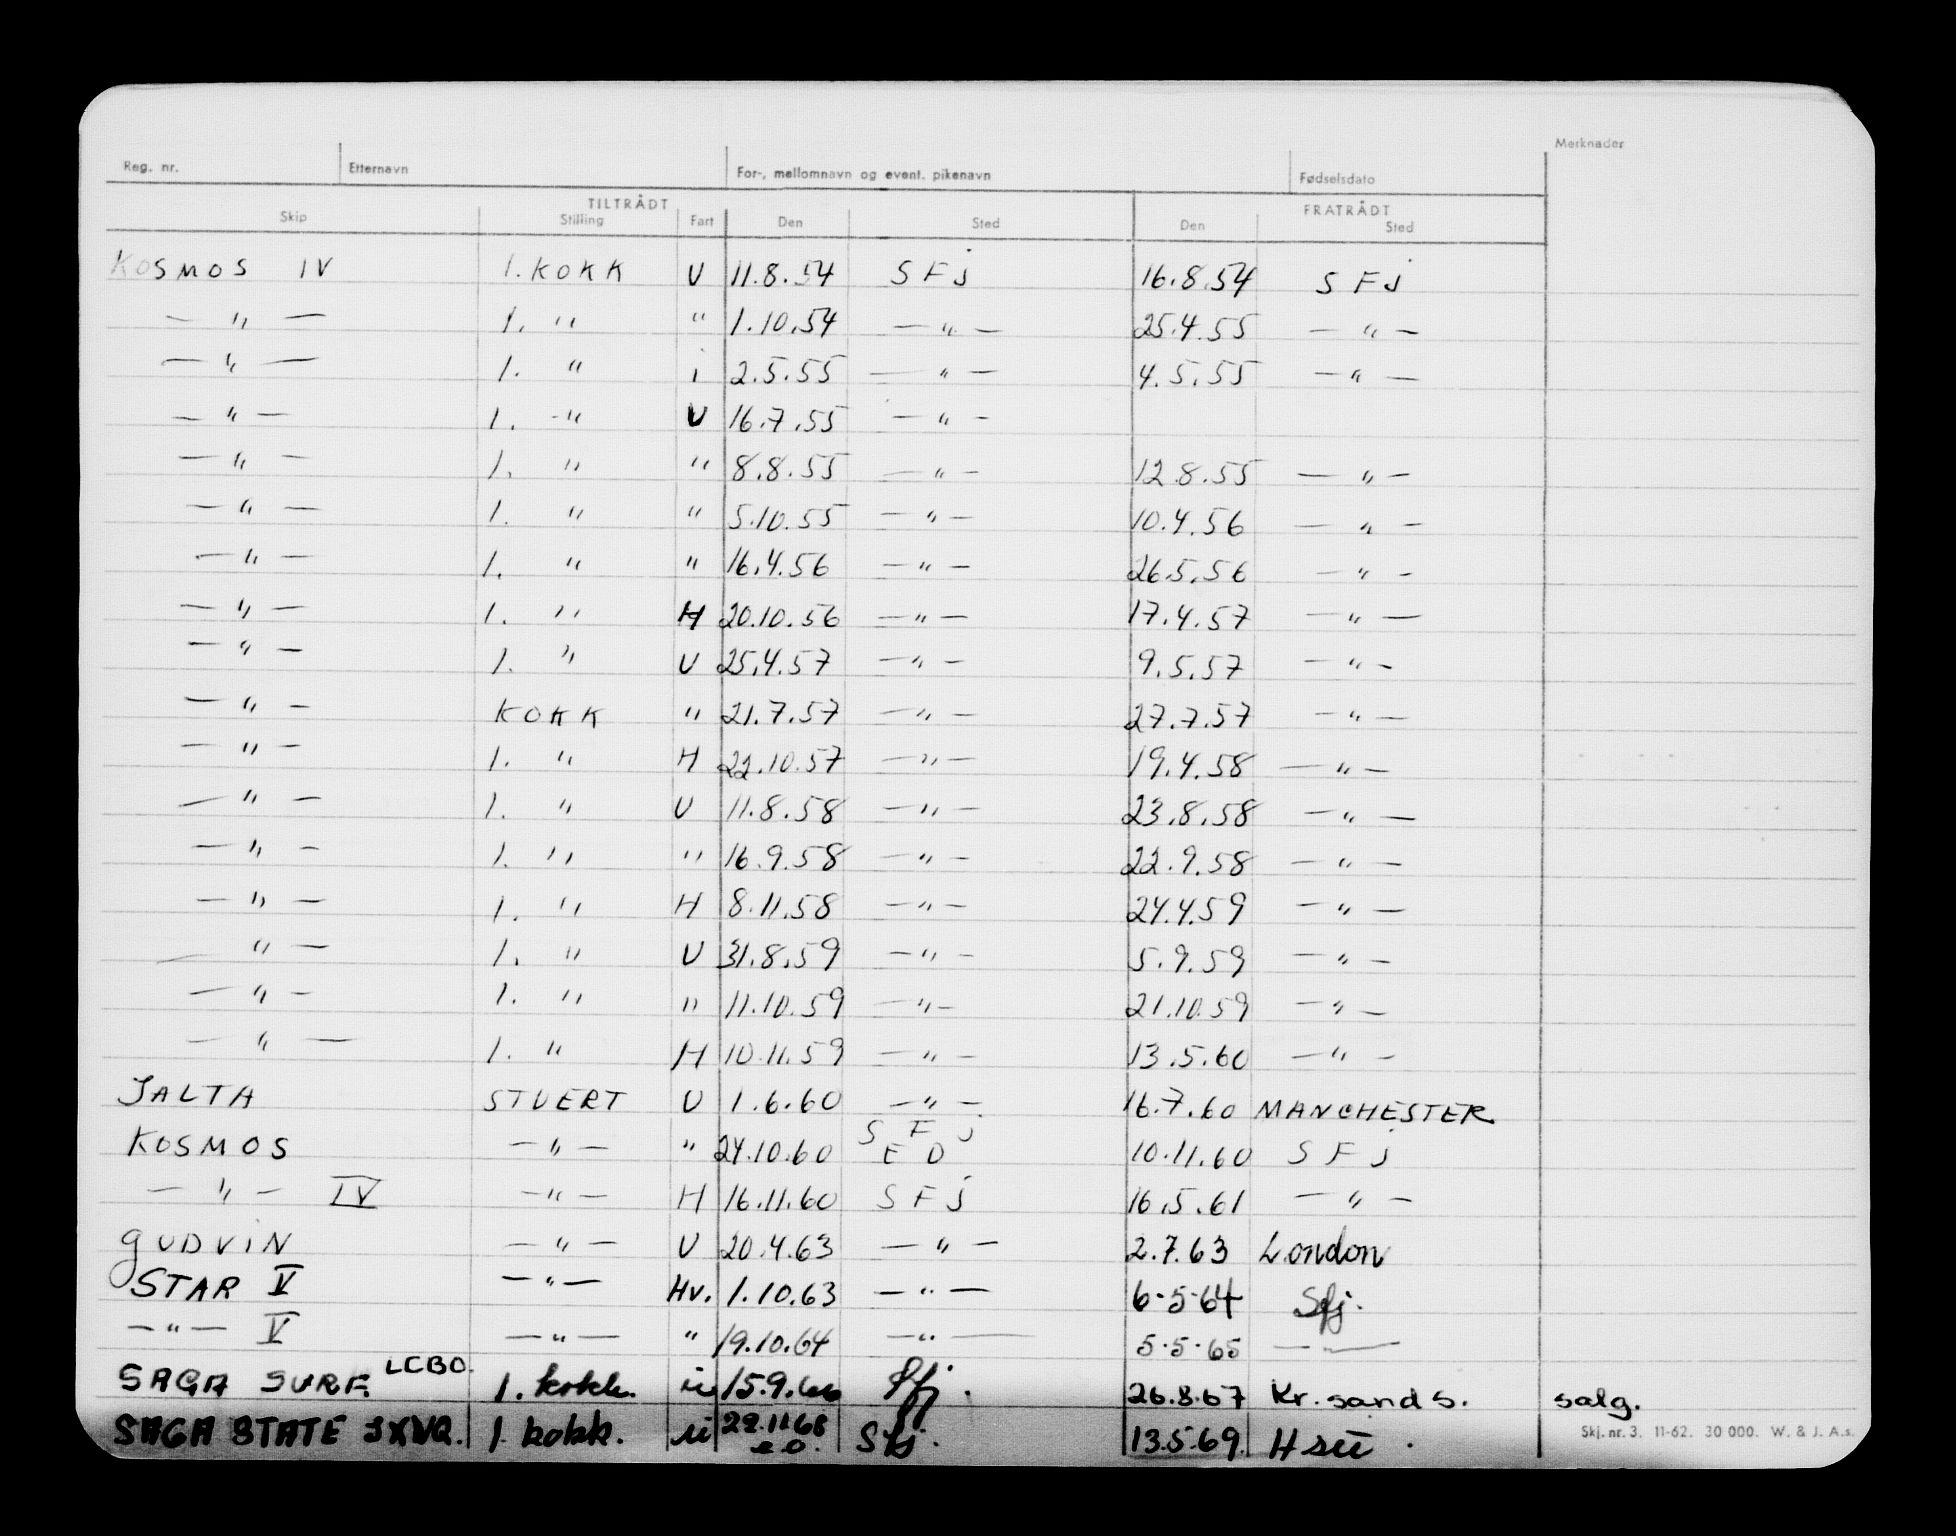 Merknader
Reg. nr. Etternavn For-, mellomnavn og event. pikenavn Fødselsdato
TILTRÅDT FRATRÅDT
Skip Stilling Fart Den Sted Den Sted
KOSMOS IV 1. KOKK U 11.8.54 SFj 16.8.54 SFj
— " — 1. " " 1.10.54 — " — 25.4.55 — " —
— " — 1. " i 2.5.55 — " — 4.5.55 — " —
— " — 1. -" U 16.7.55 — " —
— " — 1. " " 8.8.55 — " — 12.8.55 — " —
— " — 1. " " 5.10.55 — " — 10.4.56 — " —
— " — 1. " " 16.4.56 — " — 26.5.56 — " —
— " — 1. " H 20.10.56 — " — 17.4.57 — " —
— " — 1. " U 25.4.57 — " — 9.5.57 — " —
— " — KOKK " 21.7.57 — " — 27.7.57 — " —
— " — 1. " H 22.10.57 — " — 19.4.58 — " —
— " — 1. " U 11.8.58 — " — 23.8.58 — " —
— " — 1. " " 16.9.58 — " — 22.9.58 — " —
— " — 1. " H 8.11.58 — " — 24.4.59 — " —
— " — 1. " U 31.8.59 — " — 5.9.59 — " —
— " — 1. " " 11.10.59 — " — 21.10.59 — " —
— " — 1. " H 10.11.59 — " — 13.5.60 — " —
JALTA STUERT U 1.6.60 — " — 16.7.60 MANCHESTER
KOSMOS — " — " 24.10.60 SFj ED 10.11.60 SFj
— " — IV — " — H 16.11.60 SFj 16.5.61 — " —
GUDVIN — " — U 20.4.63 — " — 2.7.63 London
STAR V — " — Hv. 1.10.63 — " — 6.5.64 Sfj.
— " — V — " — " 19.10.64 — " — 5.5.65 — —
SAGA SURF. LCBO. 1. kokk. u 15.9.66 Sfj. 26.8.67 Kr. sand S. salg.
SAGA STATE JXVQ. 1. kokk. u 22.11.68 e.o. Sfj. 13.5.69.
Skj. nr. 3. 11-62. 30 000. W. & J. A.s.